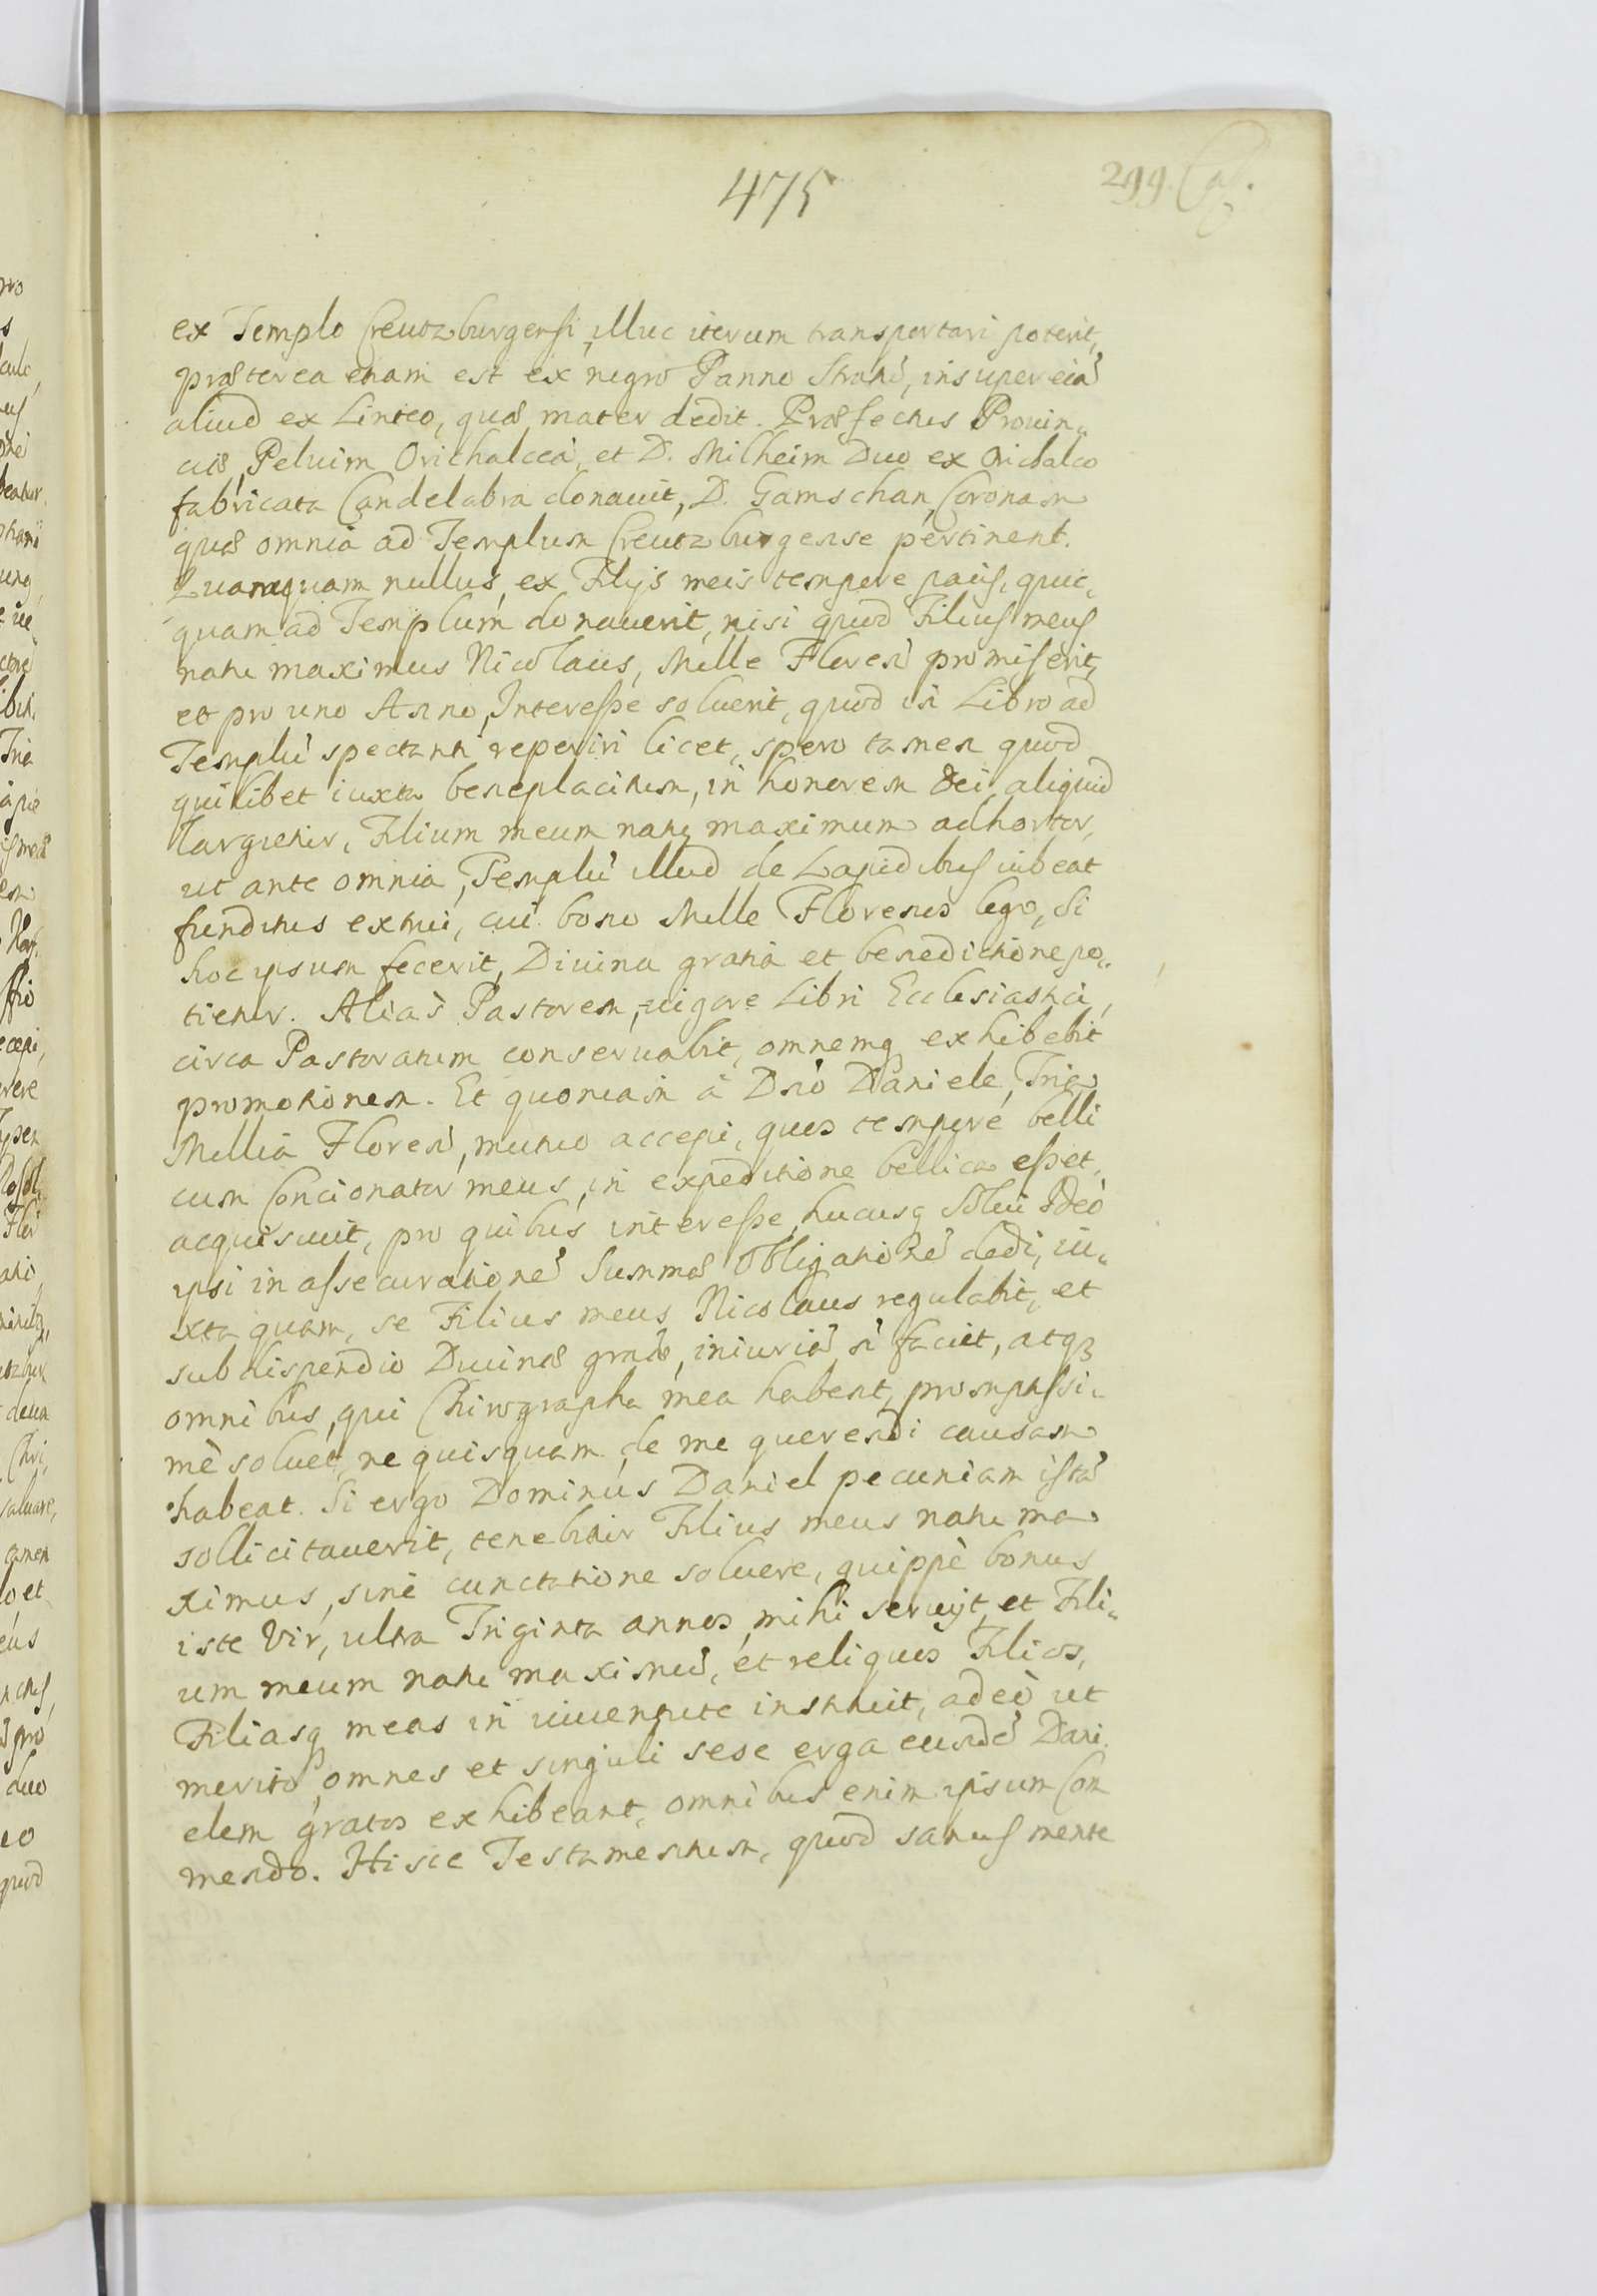 475
299.
ex Templo Creutzburgensi, illuc iterum transportari poterit,
præterea etiam est ex nigro Panno Stratū, insuper etiā
aliud ex Linteo, quæ mater dedit. Præfectus Prouin„
ciæ, Peluim Orichalceā, et D. Milheim Duo ex Orichalco
fabricata Candelabra donauit, D. Gamschan, Coronam
quæ omnia ad Templum Creutzburgense pertinent.
Quamquam nullus, ex Filijs meis tempore pacis, quic„
quam ad Templum donauerit, nisi quod Filius meus
natu maximus Nicolaus, Mille Floren̄ promiserit,
et pro uno Anno, Interesse soluerit, quod in Libro ad
Templū spectanti reperiri licet, spero tamen quod
quilibet iuxta beneplacitum, in honorem Dei, aliquid
largietur, Filium meum natu maximum adhortor,
ut ante omnia, Templū illud de Lapidibus iubeat
funditus extrui, cui bono Mille Florenos lego, Si
hoc ipsum fecerit, Diuina gratiâ et benedictione po„
tietur. Aliàs Pastorem, uigore Libri Ecclesiastici,
circa Pastoratum conseruabit, omnemq exhibebit
promotionem. Et quoniam à Dn̄o Daniele, Tria
Millia Floren̄, mutuo accepi, quos tempore belli
cum Concionator meus, in expeditione bellica esset,
acquisiuit, pro quibus interesse hucusq Solui Ideò
ipsi in assecurationē Summæ Obligationē dedi, iu„
xta quam, se Filius meus Nicolaus regulabit, et
sub dispendio Diuinæ graæ, iniuriā n̄ faciet, atq3
omnibus, qui Chirographa mea habent, promptissi„
mè soluet, ne quisquam de me querendi causam
habeat. Si ergo Dominus Daniel pecuniam istā
sollicitauerit, tenebitur Filius meus natu ma
ximus, sine cunctatione soluere, quippè bonus
iste Vir, ultra Triginta annos, mihi seruijt, et Fili„
um meum natu maximū, et reliquos Filios,
Filiasq meas in iuuentute instruit, adeò ut
meritò omnes et singuli sese erga eundē Dani
elem gratos exhibeant, omnibus enim ipsum Com
mendo. Hisce Testamentum, quod sanus mente